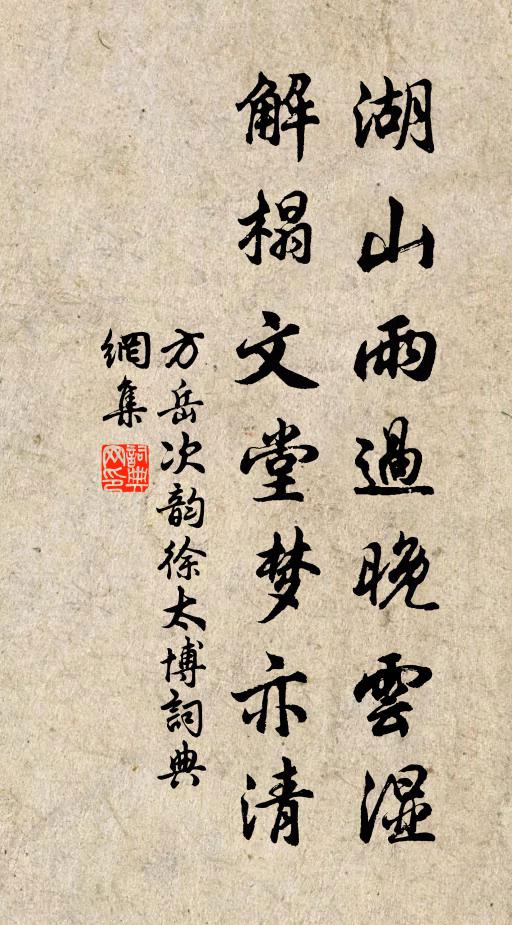 湖山雨過晚雲湿
解榻文堂梦亦清
方岳次韵徐太博詞典
網集
詞典网印